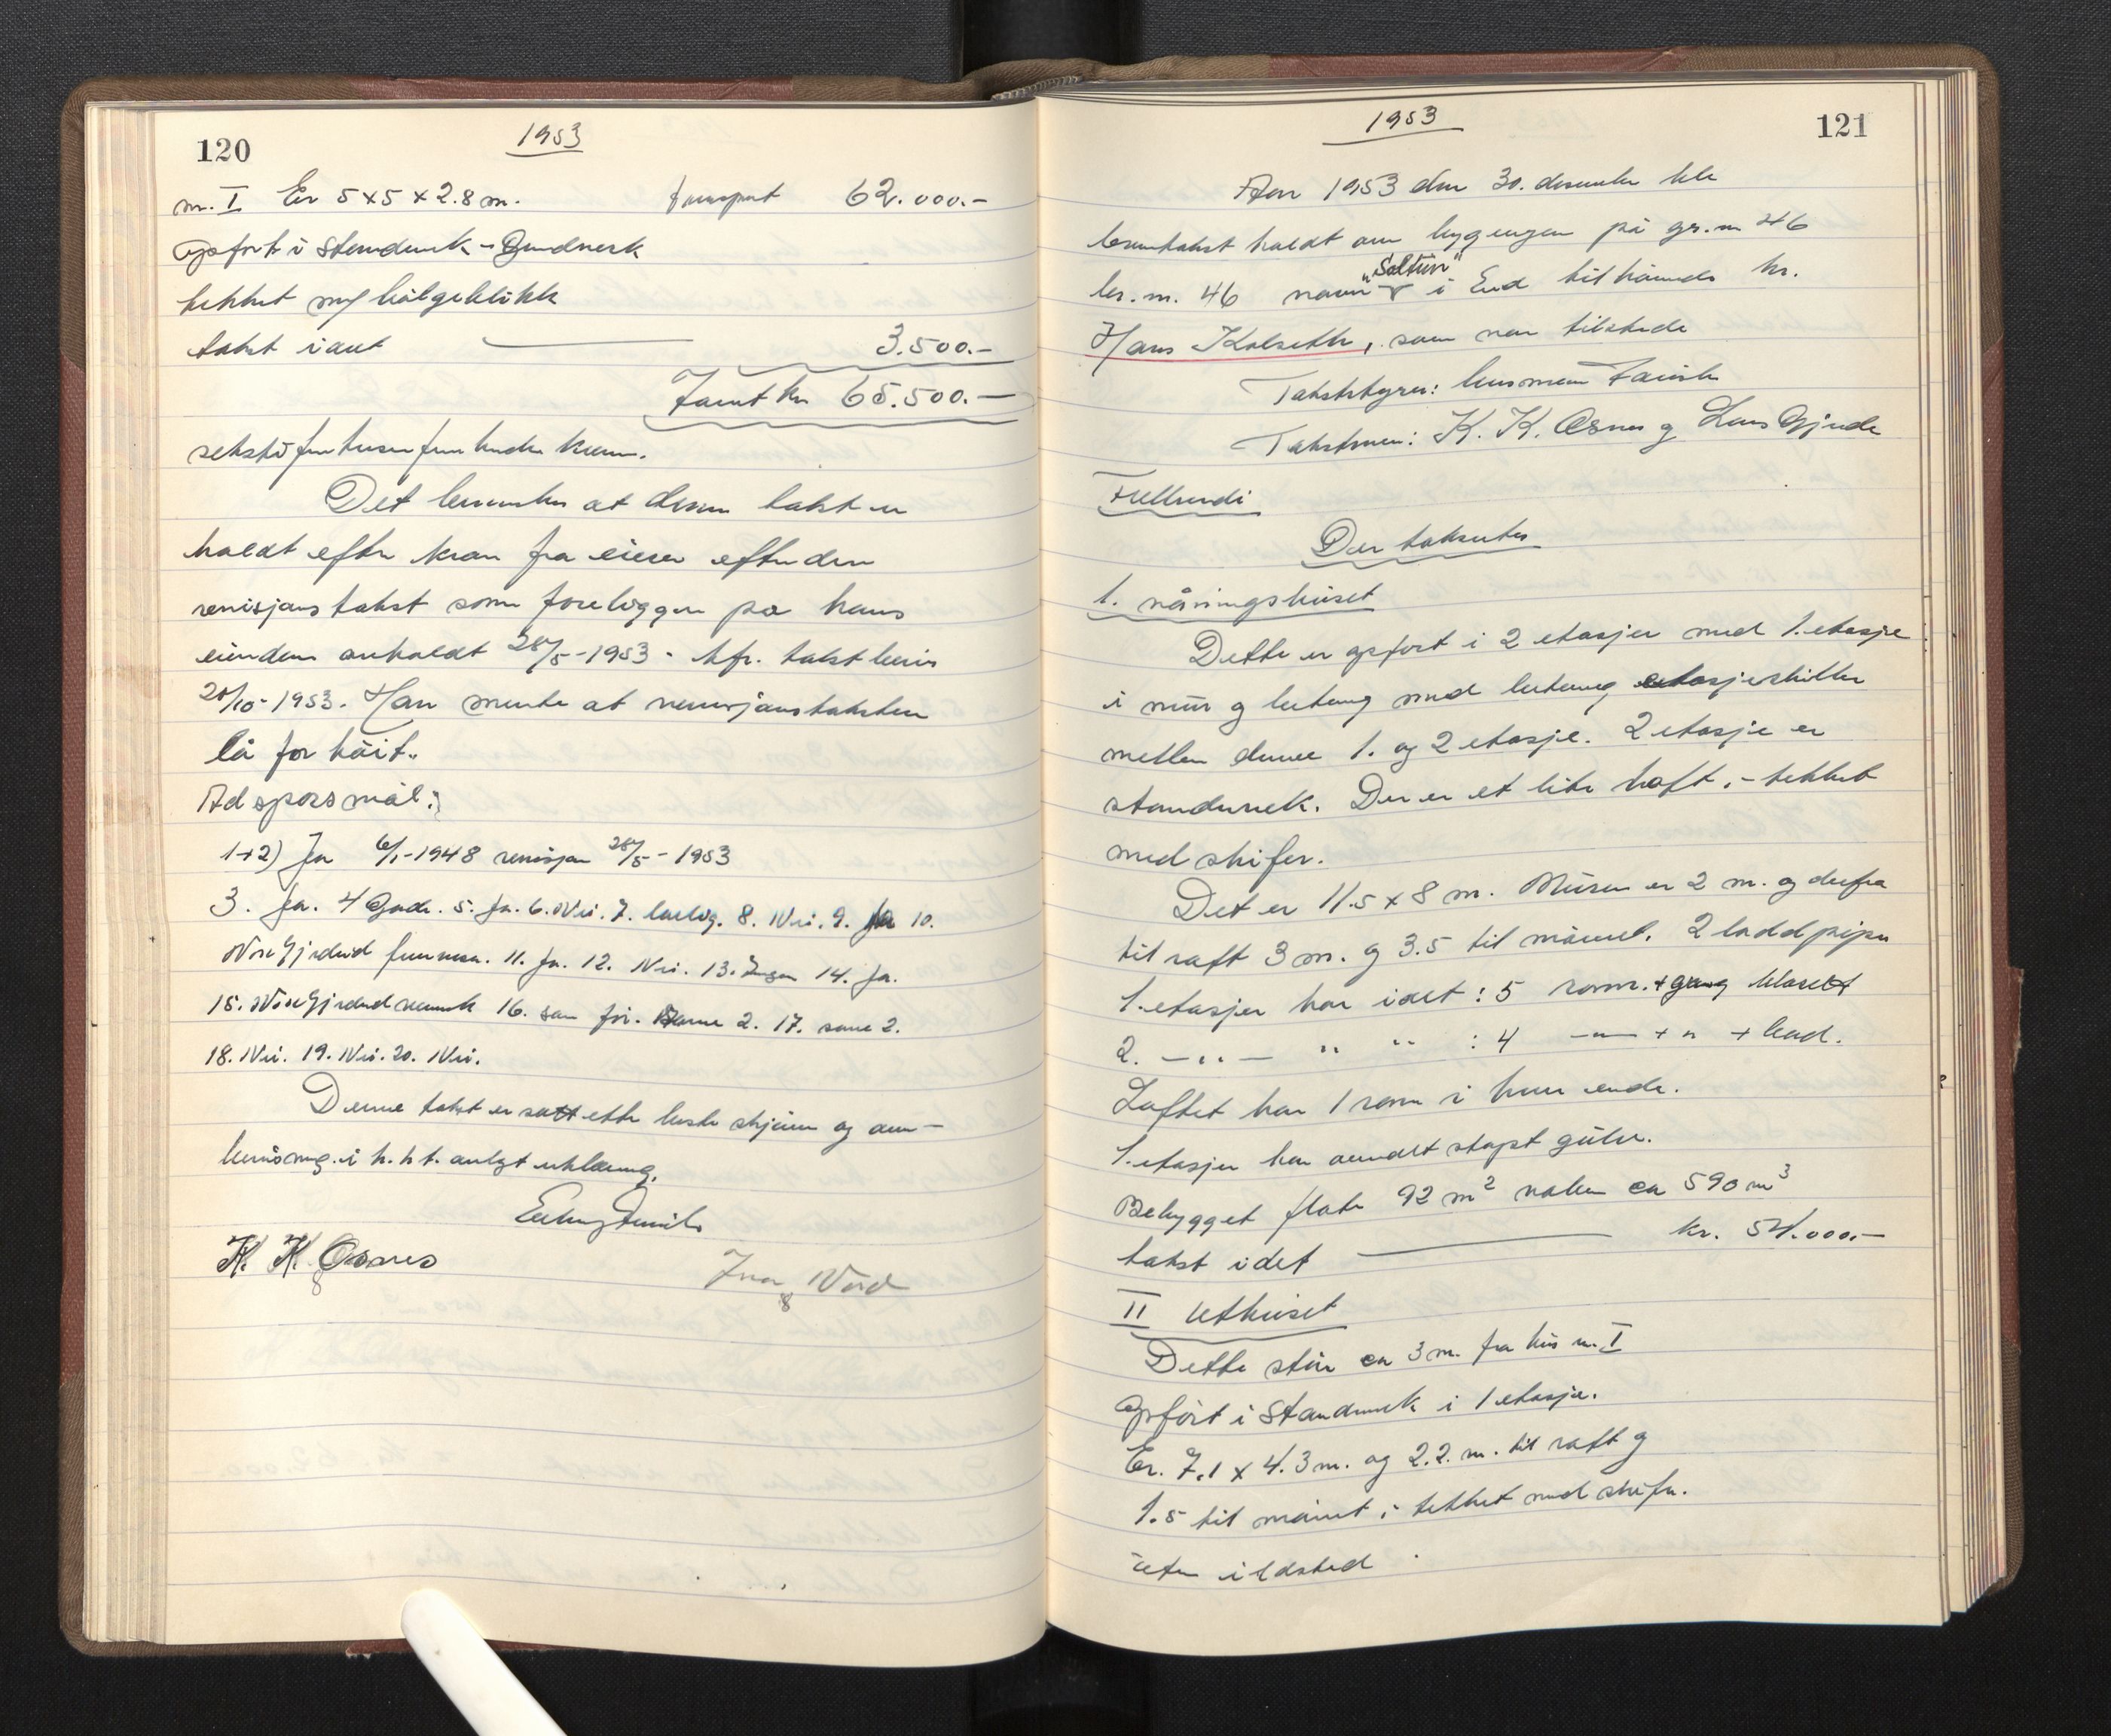 120
1953
nr. I Er 5x5x2.8 m. transport 62.000.-
Opført i standverk - Bindverk
tekket m/ bølgeblikk
takst i alt 3.500.-
Samt kr 65.500.-
sekstifemtusenfemhundre kroner.
Det bemerkes at denne takst er
holdt efter krav fra eieren efter den
revisjonstakst som foreligger på hans
eiendom avholdt 28/5-1953 - kfr. takst bevis
20/10-1953. Han mente at revisjonstaksten
lå for høit.
Ad spørsmål:
1+2) Ja 6/1-1948 revisjon 28/5-1953
3. Ja. 4 Gode. 5. Ja. 6. Nei. 7. 8. Nei. 9. Ja 10.
11. Ja. 12. Nei. 13. Ingen 14. Ja.
15. 16. som for. 2. 17. same 2.
18. Nei. 19. Nei. 20. Nei.
Denne takst er satt efter beste skjønn og over-
bevisning i h.h.t. avlagt erklæring.
K. K. Osnes
121
1953
Aar 1953 den 30. desember ble
branntakst holdt over bygningen på gr. nr 46
br. nr. 46 navn "Soltun" i Eid tilhørende hr.
Hans Kolseth, som var tilstede
Takststyrer: lensmann
Takstmenn: K. K. Osnes og Lars Gjerde
Der takseres
1. våningshuset
Dette er opført i 2 etasjer med 1. etasje
i mur og betong med betong etasjeskiller
mellem denne 1. og 2 etasje. 2 etasje er
standverk. Der er et lite loft, - tekket
med skifer.
Det er 11.5 x 8 m. Muren er 2 m. og derfra
til raft 3 m. og 3.5 til mønet. 2 ladd piper
1. etasjer har i det : 5 rom. + gang klosett
2. -"- " " : 4 -"- + " + bad.
Loftet har 1 rom i hver ende.
1. etasjer har overalt støpt gulv.
Bebygget flate 92 m² volum ca 590 m³
takst i det kr. 54.000.-
II Uthuset
Dette står ca 3 m. fra hus nr. I
Opført i Standverk i 1 etasje.
Er. 7.1 x 4.3 m. og 2.2. m. til raft og
1.5 til mønet i tekket med skifer.
uten ildsted